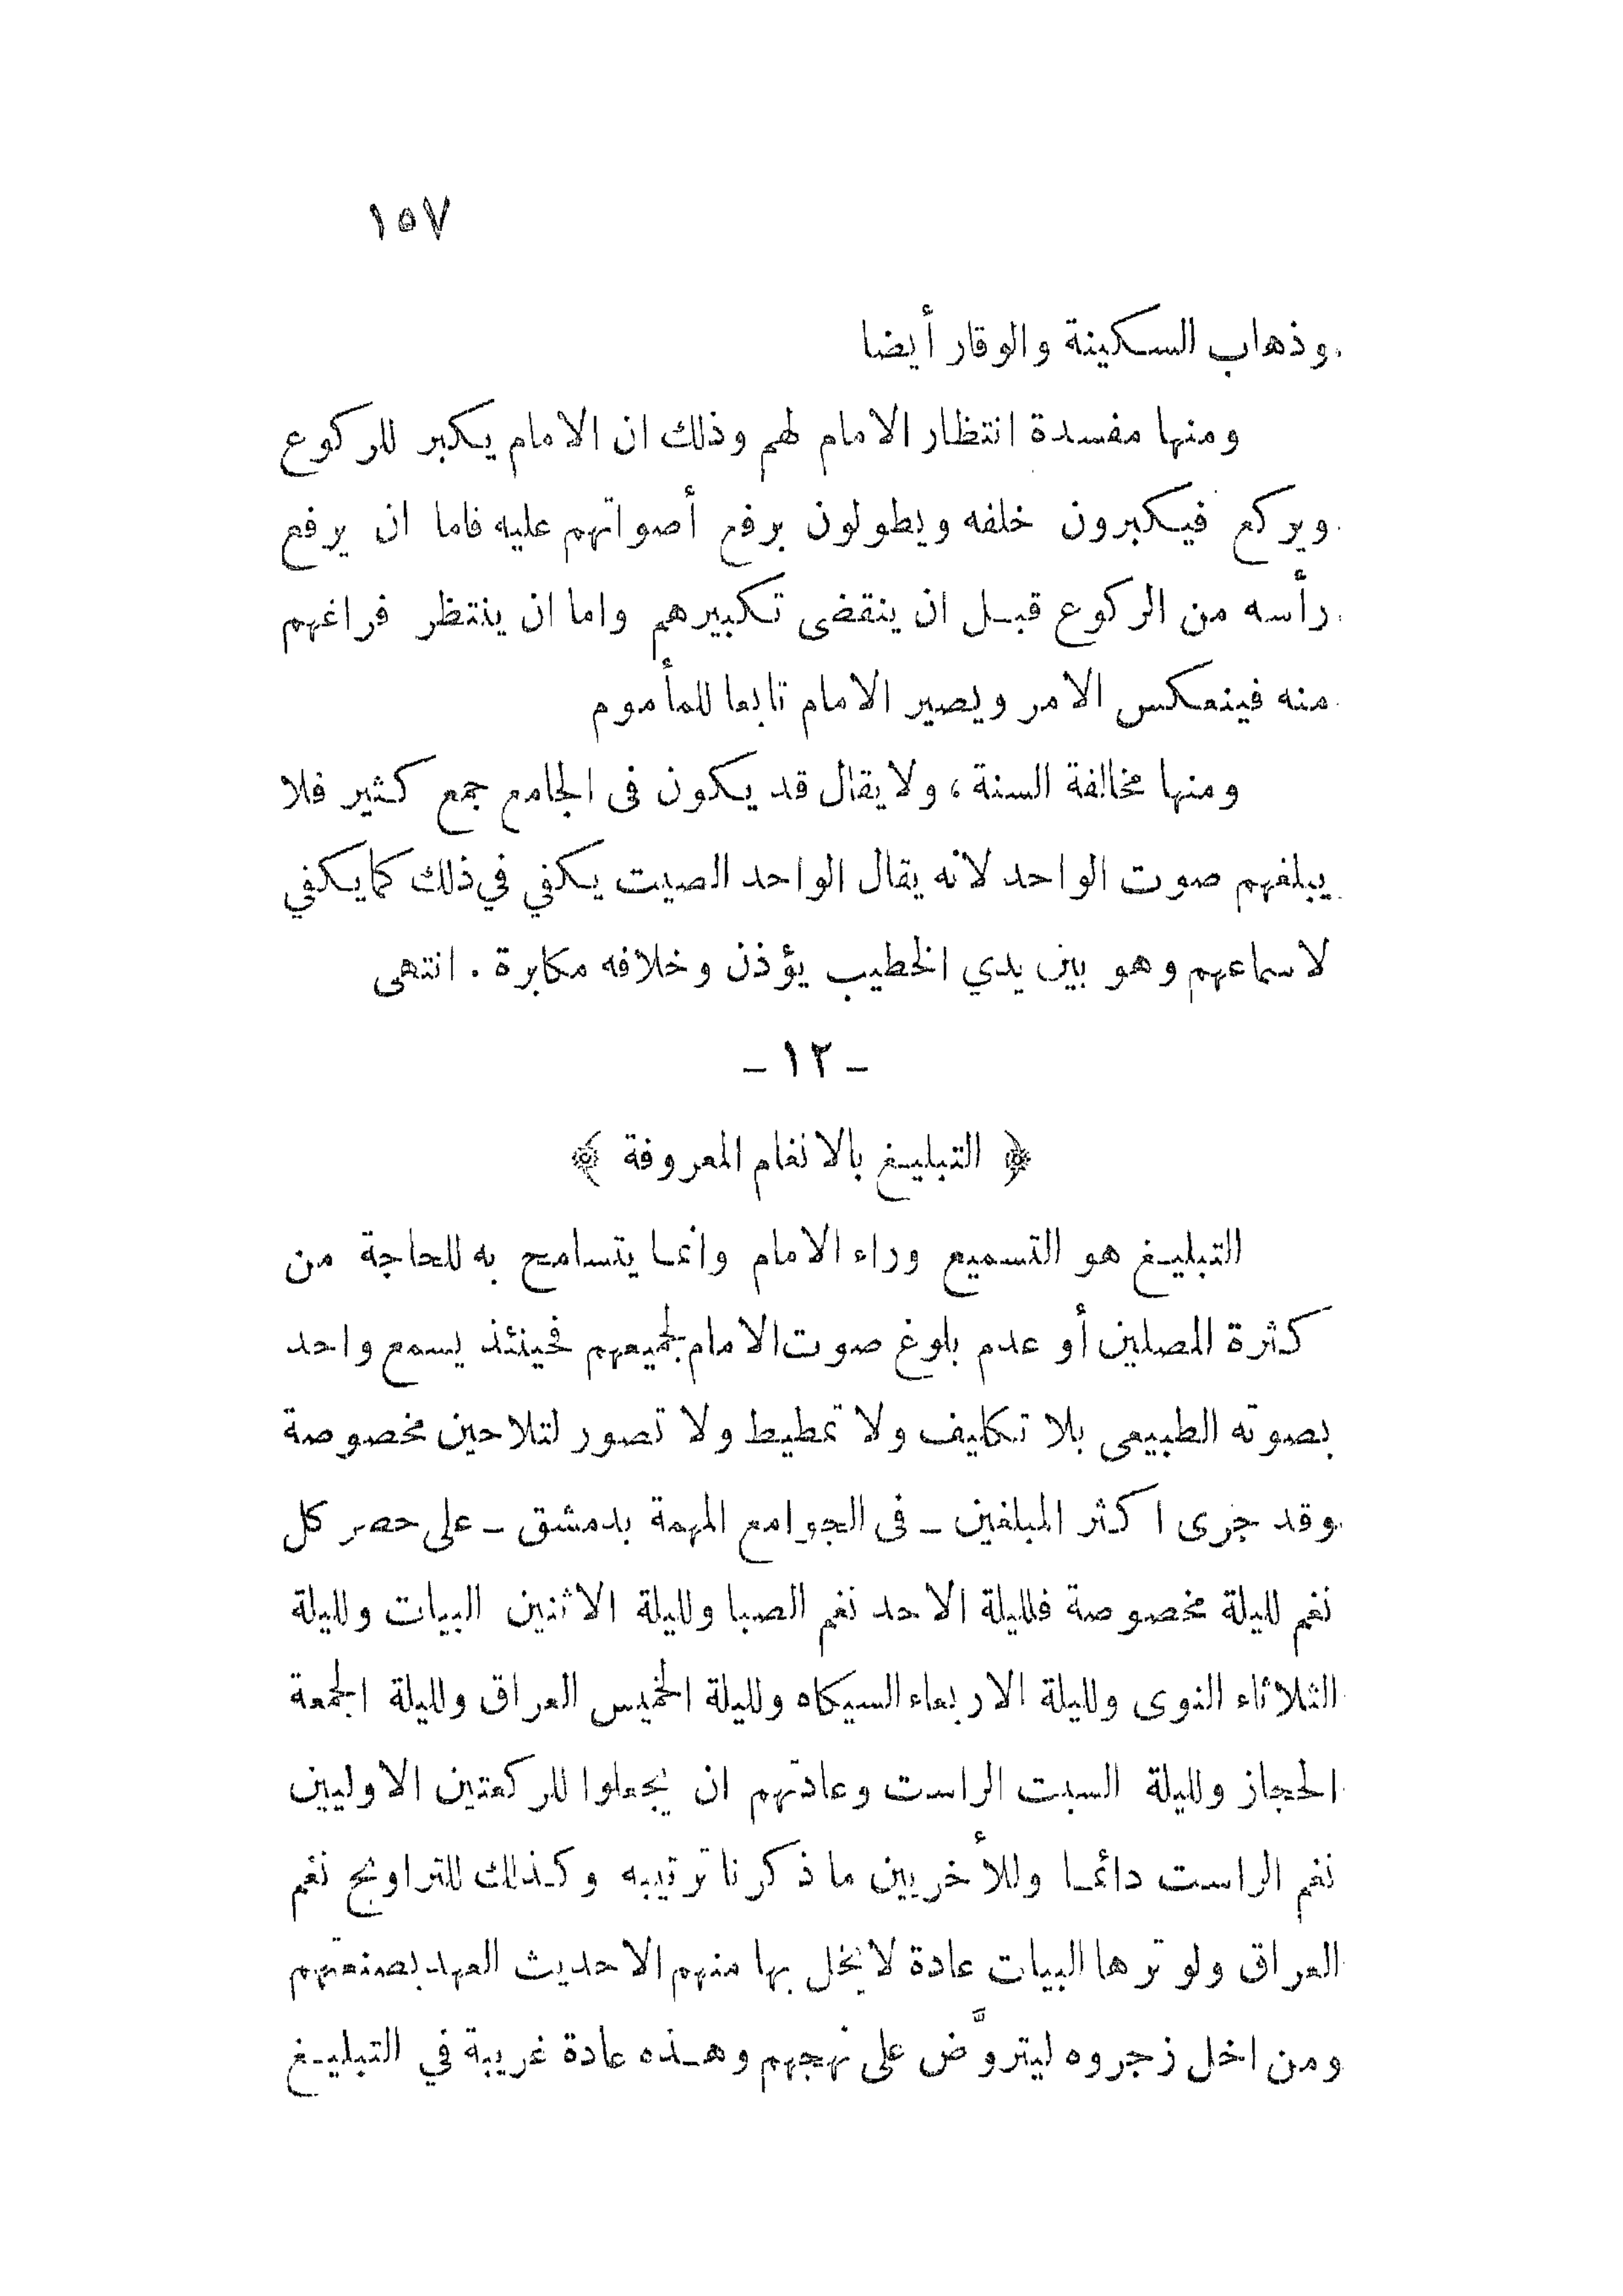 ١٥٧
وذهاب السكينة والوقار أيضا
ومنها مفسدة انتظار الامام لهم وذلك ان الامام يكبر للركوع
ويركع فيكبرون خلفه ويطولون برفع أصواتهم عليه فاما ان يرفع
رأسه من الركوع قبل ان ينقضى تكبيرهم واما ان ينتظر فراغهم
منه فينعكس الامر ويصير الامام تابعا للمأموم
ومنها مخالفة السنة ، ولا يقال قد يكون فى الجامع جمع كثير فلا
يبلغهم صوت الواحد لانه يقال الواحد الصيت يكفي في ذلك كما يكفي
لاسماعهم وهو بين يدي الخطيب يؤذن وخلافه مكابرة . انتهى
- ١٢ -
﴿ التبليغ بالانغام المعروفة ﴾
التبليغ هو التسميع وراء الامام وانما يتسامح به للحاجة من
كثرة المصلين أو عدم بلوغ صوت الامام لجميعهم فحينئذ يسمع واحد
بصوته الطبيعى بلا تكليف ولا تمطيط ولا تصور لتلاحين مخصوصة
وقد جرى اكثر المبلغين - فى الجوامع المهمة بدمشق - على حصر كل
نغم لليلة مخصوصة فلليلة الاحد نغم الصبا ولليلة الاثنين البيات ولليلة
الثلاثاء النوى ولليلة الاربعاء السيكاه ولليلة الخميس العراق ولليلة الجمعة
الحجاز ولليلة السبت الراست وعادتهم ان يجعلوا للركعتين الاوليين
نغم الراست دائما وللأخريين ما ذكرنا ترتيبه وكذلك للتراويح نغم
العراق ولوترها البيات عادة لا يخل بها منهم الا حديث العهد بصنعتهم
ومن اخل زجروه ليتروَّض على نهجهم وهذه عادة غريبة في التبليغ